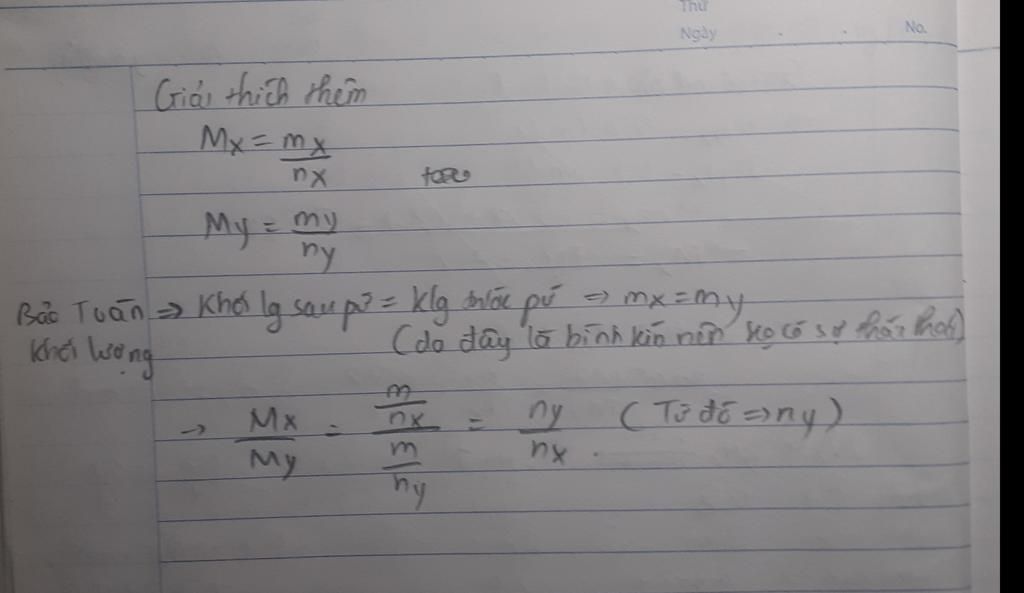 Thứ
Ngày . . No.
Giải thích thêm
Mx = mx / nx
My = my / ny
Bảo Toàn => Khối lg sau pứ = klg trước pứ => mx = my
Khối lượng (do đây là bình kín nên ko có sự thất thoát)
→ Mx / My = (m / nx) / (m / ny) = ny / nx . (Từ đó => ny)